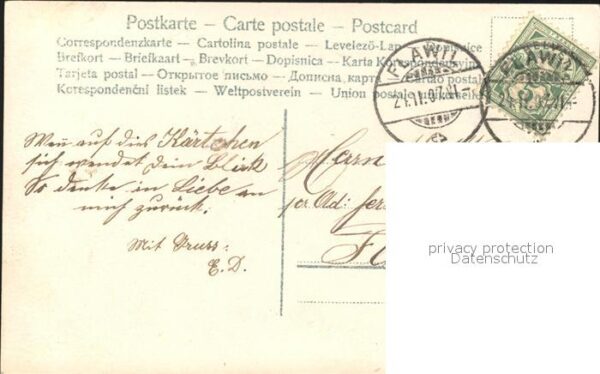 Postkarte – Carte postale – Postcard
Correspondenzkarte – Cartolina postale – Levelező-Lap
Brefkort – Briefkaart – Brevkort – Dopisnica – Karta Korespondencyjna
Tarjeta postal – Открытое письмо – Дописна карта
Korespondenční listek – Weltpostverein – Union postale universelle
FLAWIL
FLAWIL
Wenn auf dies Kärtchen
sich wendet dein Blick
So denke in Liebe an
mich zurück.
Mit Gruss:
E. D.
Herrn
per Ad:
privacy protection
Datenschutz